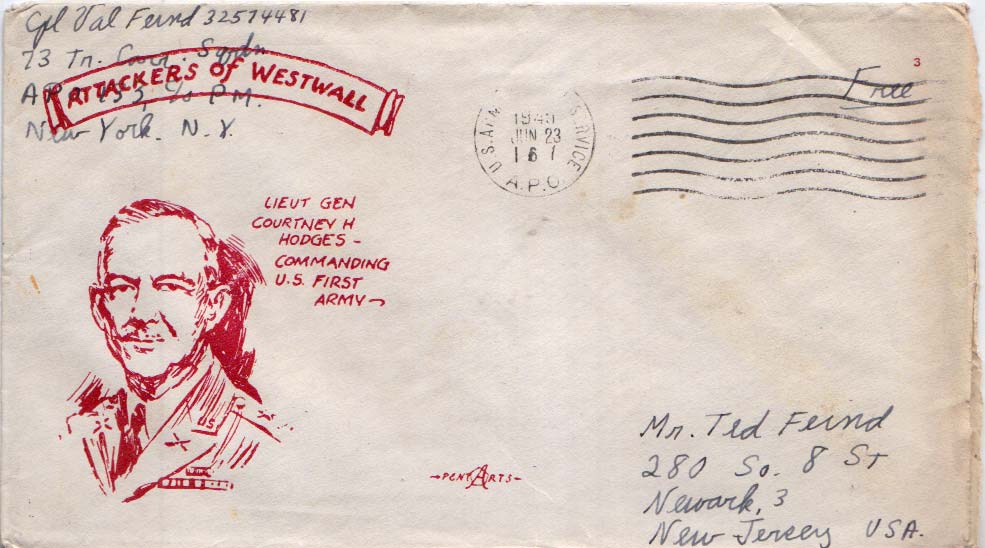 Cpl Val Feind 32574481
73 Tr. Carr. Sqdn
APO 133, c/o P.M.
New York. N.Y.
ATTACKERS OF WESTWALL
LIEUT GEN
COURTNEY H
HODGES -
COMMANDING
U.S. FIRST
ARMY
US
PENT ARTS
U.S. ARM SERVICE
JUN 23
A.P.O.
3
Free
Mr. Ted Feind
280 So. 8 St
Newark, 3
New Jersey USA.